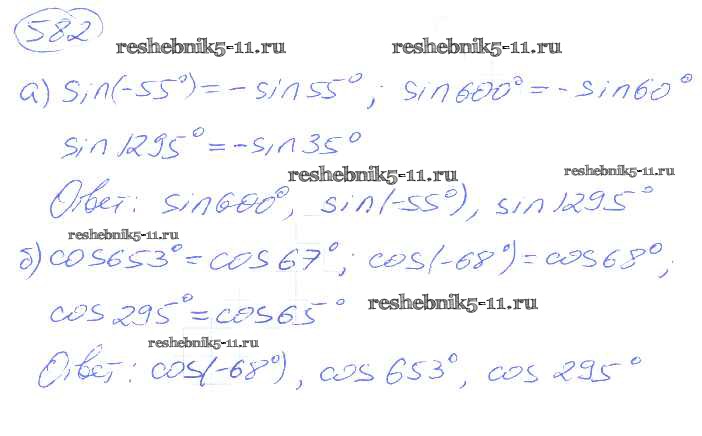 582
reshebnik5-11.ru reshebnik5-11.ru
а) sin(-55°) = -sin 55°; sin 600° = -sin 60°
sin 1295° = -sin 35°
reshebnik5-11.ru reshebnik5-11.ru
Ответ: sin 600°, sin(-55°), sin 1295°
reshebnik5-11.ru
б) cos 653° = cos 67°; cos(-68°) = cos 68°;
cos 295° = cos 65° reshebnik5-11.ru
reshebnik5-11.ru
Ответ: cos(-68°), cos 653°, cos 295°